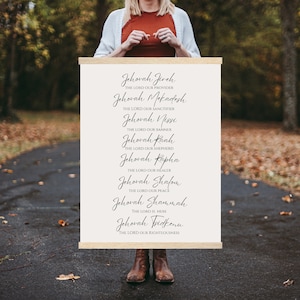 Jehovah Jireh
THE LORD OUR PROVIDER
Jehovah Mekadesh
THE LORD OUR SANCTIFIER
Jehovah Nisse
THE LORD OUR BANNER
Jehovah Raah
THE LORD OUR SHEPHERD
Jehovah Rapha
THE LORD OUR HEALER
Jehovah Shalom
THE LORD OUR PEACE
Jehovah Shammah
THE LORD IS HERE
Jehovah Tsidkenu
THE LORD OUR RIGHTEOUSNESS